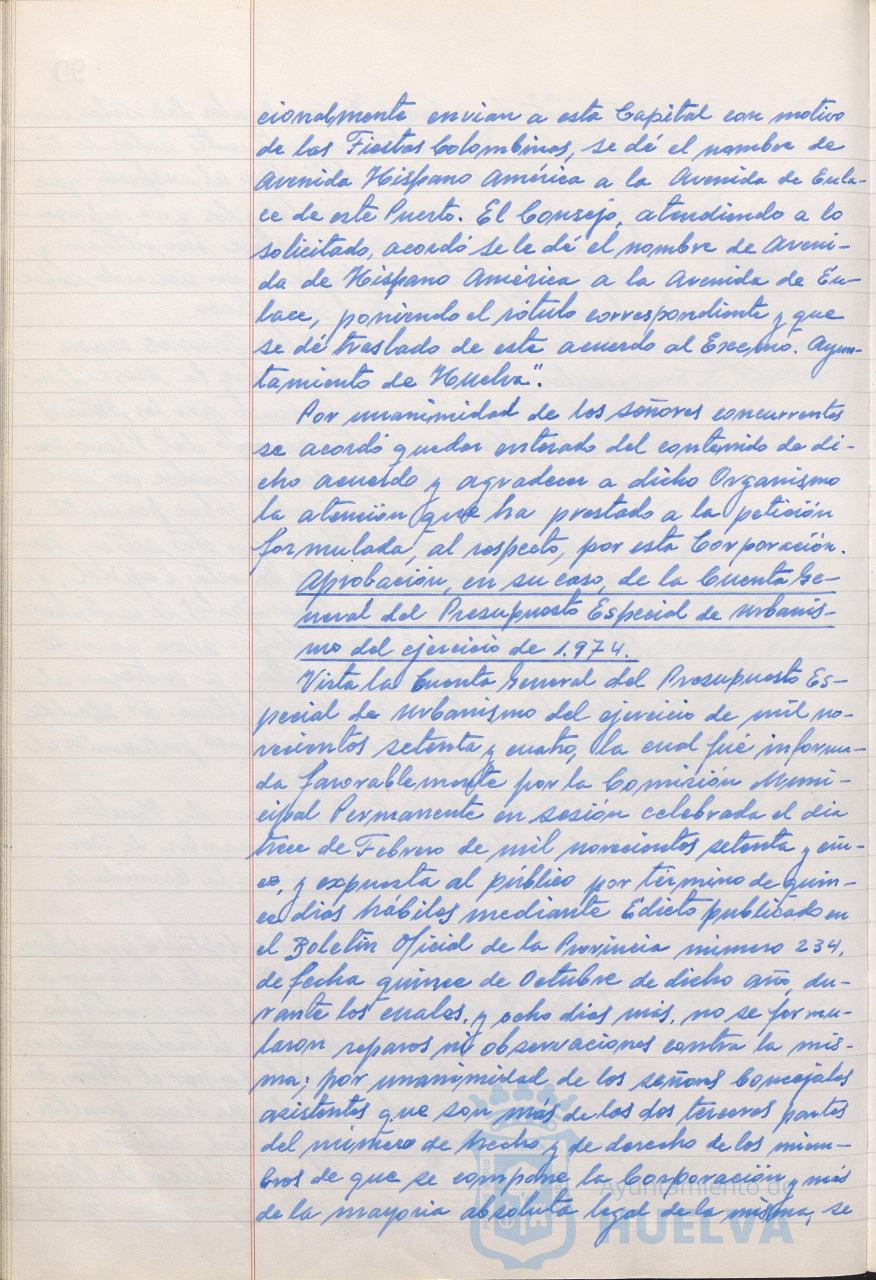 cionalmente envian a esta Capital con motivo
de las Fiestas Colombinas, se dé el nombre de
Avenida Hispano América a la Avenida de Enla-
ce de este Puerto. El Consejo, atendiendo a lo
solicitado, acordó se le dé el nombre de Aveni-
da de Hispano América a la Avenida de En-
lace, poniendo el rótulo correspondiente y que
se dé traslado de este acuerdo al Excmo. Ayun-
tamiento de Huelva".
Por unanimidad de los señores concurrentes
se acordó quedar enterado del contenido de di-
cho acuerdo y agradecer a dicho Organismo
la atención que ha prestado a la petición
formulada, al respecto, por esta Corporación.
Aprobación, en su caso, de la Cuenta Ge-
neral del Presupuesto Especial de Urbanis-
mo del ejercicio de 1.974.
Vista la Cuenta General del Presupuesto Es-
pecial de Urbanismo del ejercicio de mil no-
vecientos setenta y cuatro, la cual fué informa-
da favorablemente por la Comisión Muni-
cipal Permanente en sesión celebrada el dia
trece de Febrero de mil novecientos setenta y cin-
co, y expuesta al público por término de quin-
ce dias hábiles mediante Edicto publicado en
el Boletín Oficial de la Provincia número 234,
de fecha quince de Octubre de dicho año, du-
rante los cuales, y ocho dias más, no se formu-
laron reparos ni observaciones contra la mis-
ma; por unanimidad de los señores Concejales
asistentes que son más de las dos terceras partes
del número de hecho y de derecho de los miem-
bros de que se compone la Corporación y más
de la mayoria absoluta legal de la misma, se
Ayuntamiento de
HUELVA